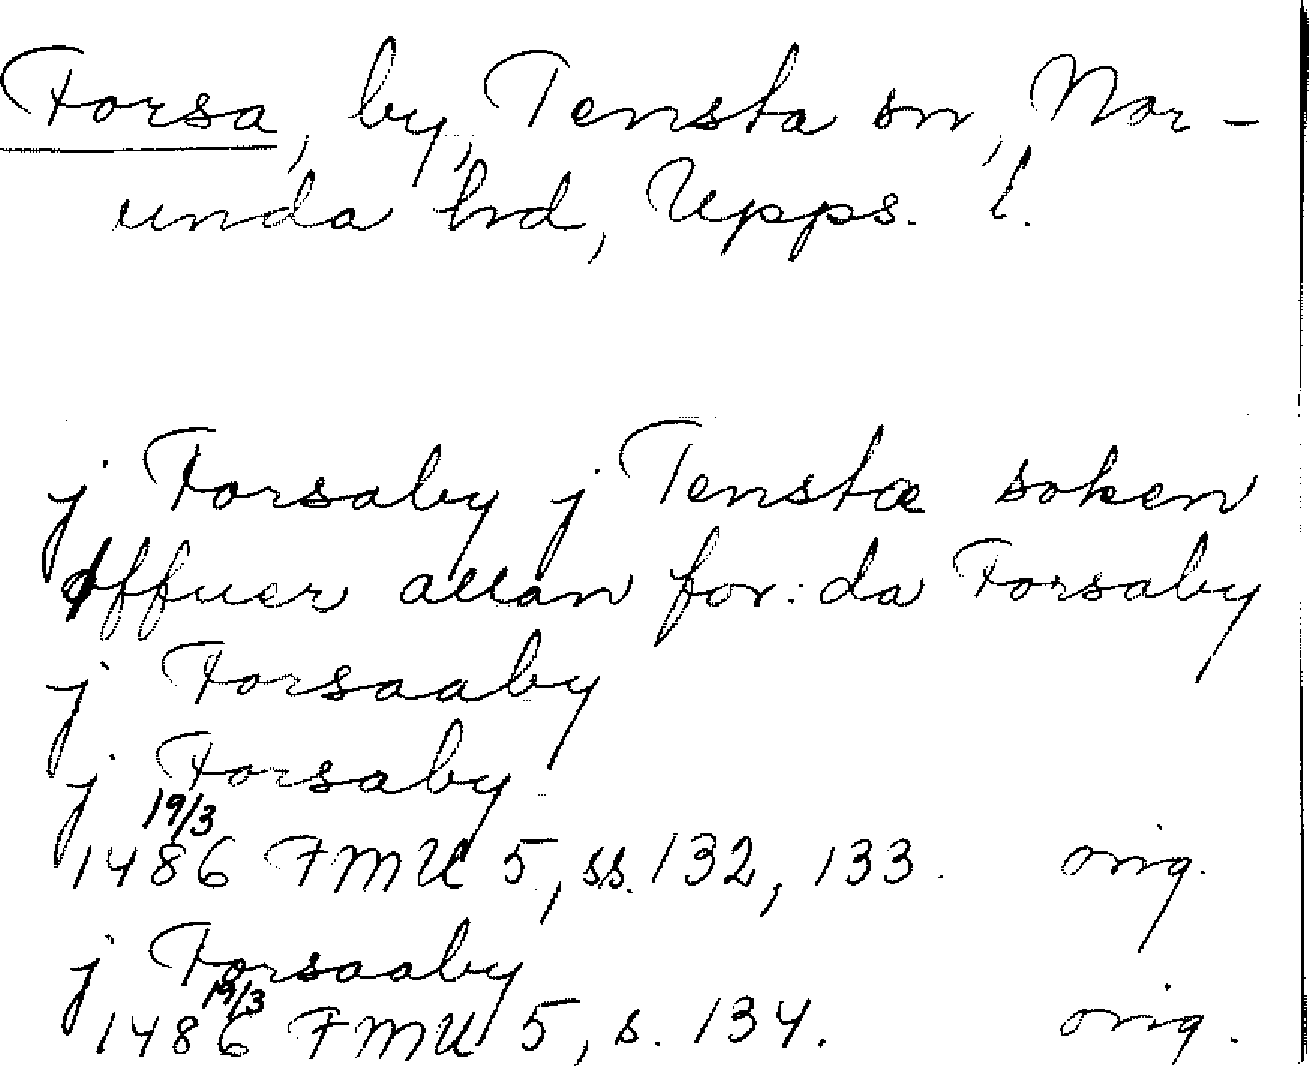 Forsa, by, Tensta sn, Nor-
unda hrd, Upps. l.
j Forsaby j Tenstæ soken
offuer allan for:da Forsaby
j Forsaaby
j Forsaby
19/3
1486 FMU 5, ss. 132, 133. orig.
j Forsaaby
19/3
1486 FMU 5, s. 134. orig.